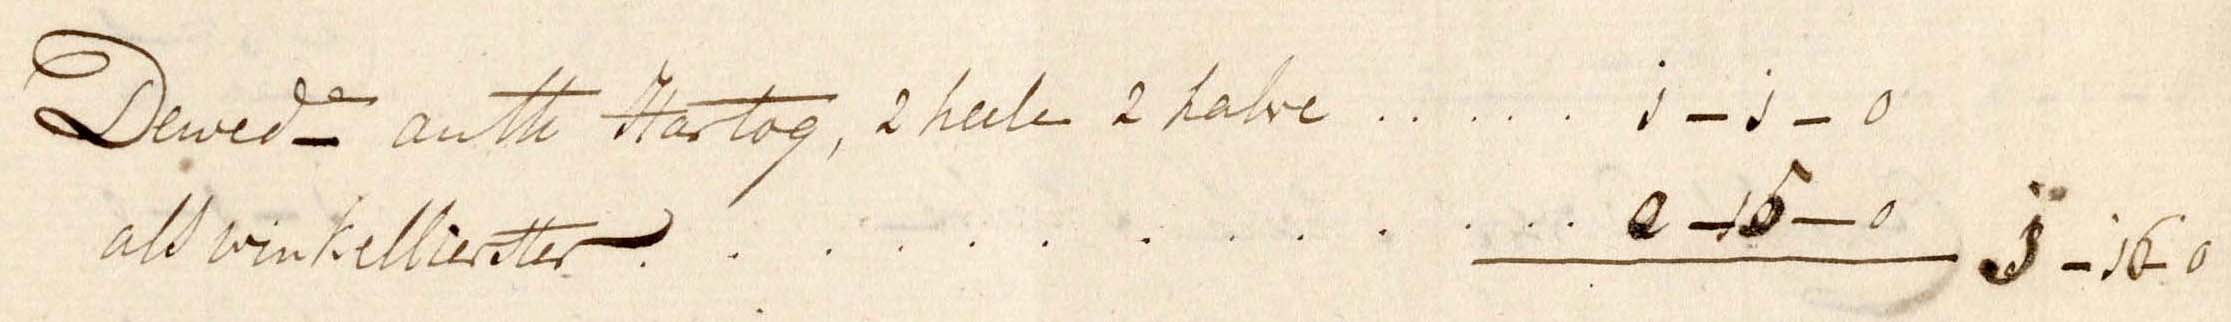 De wed.e anth Hartog, 2 heele 2 halve . . . . . 1 - 1 - 0
als winkellierster . . . . . . . . . . . . 0 - 15 - 0 1 - 16 - 0